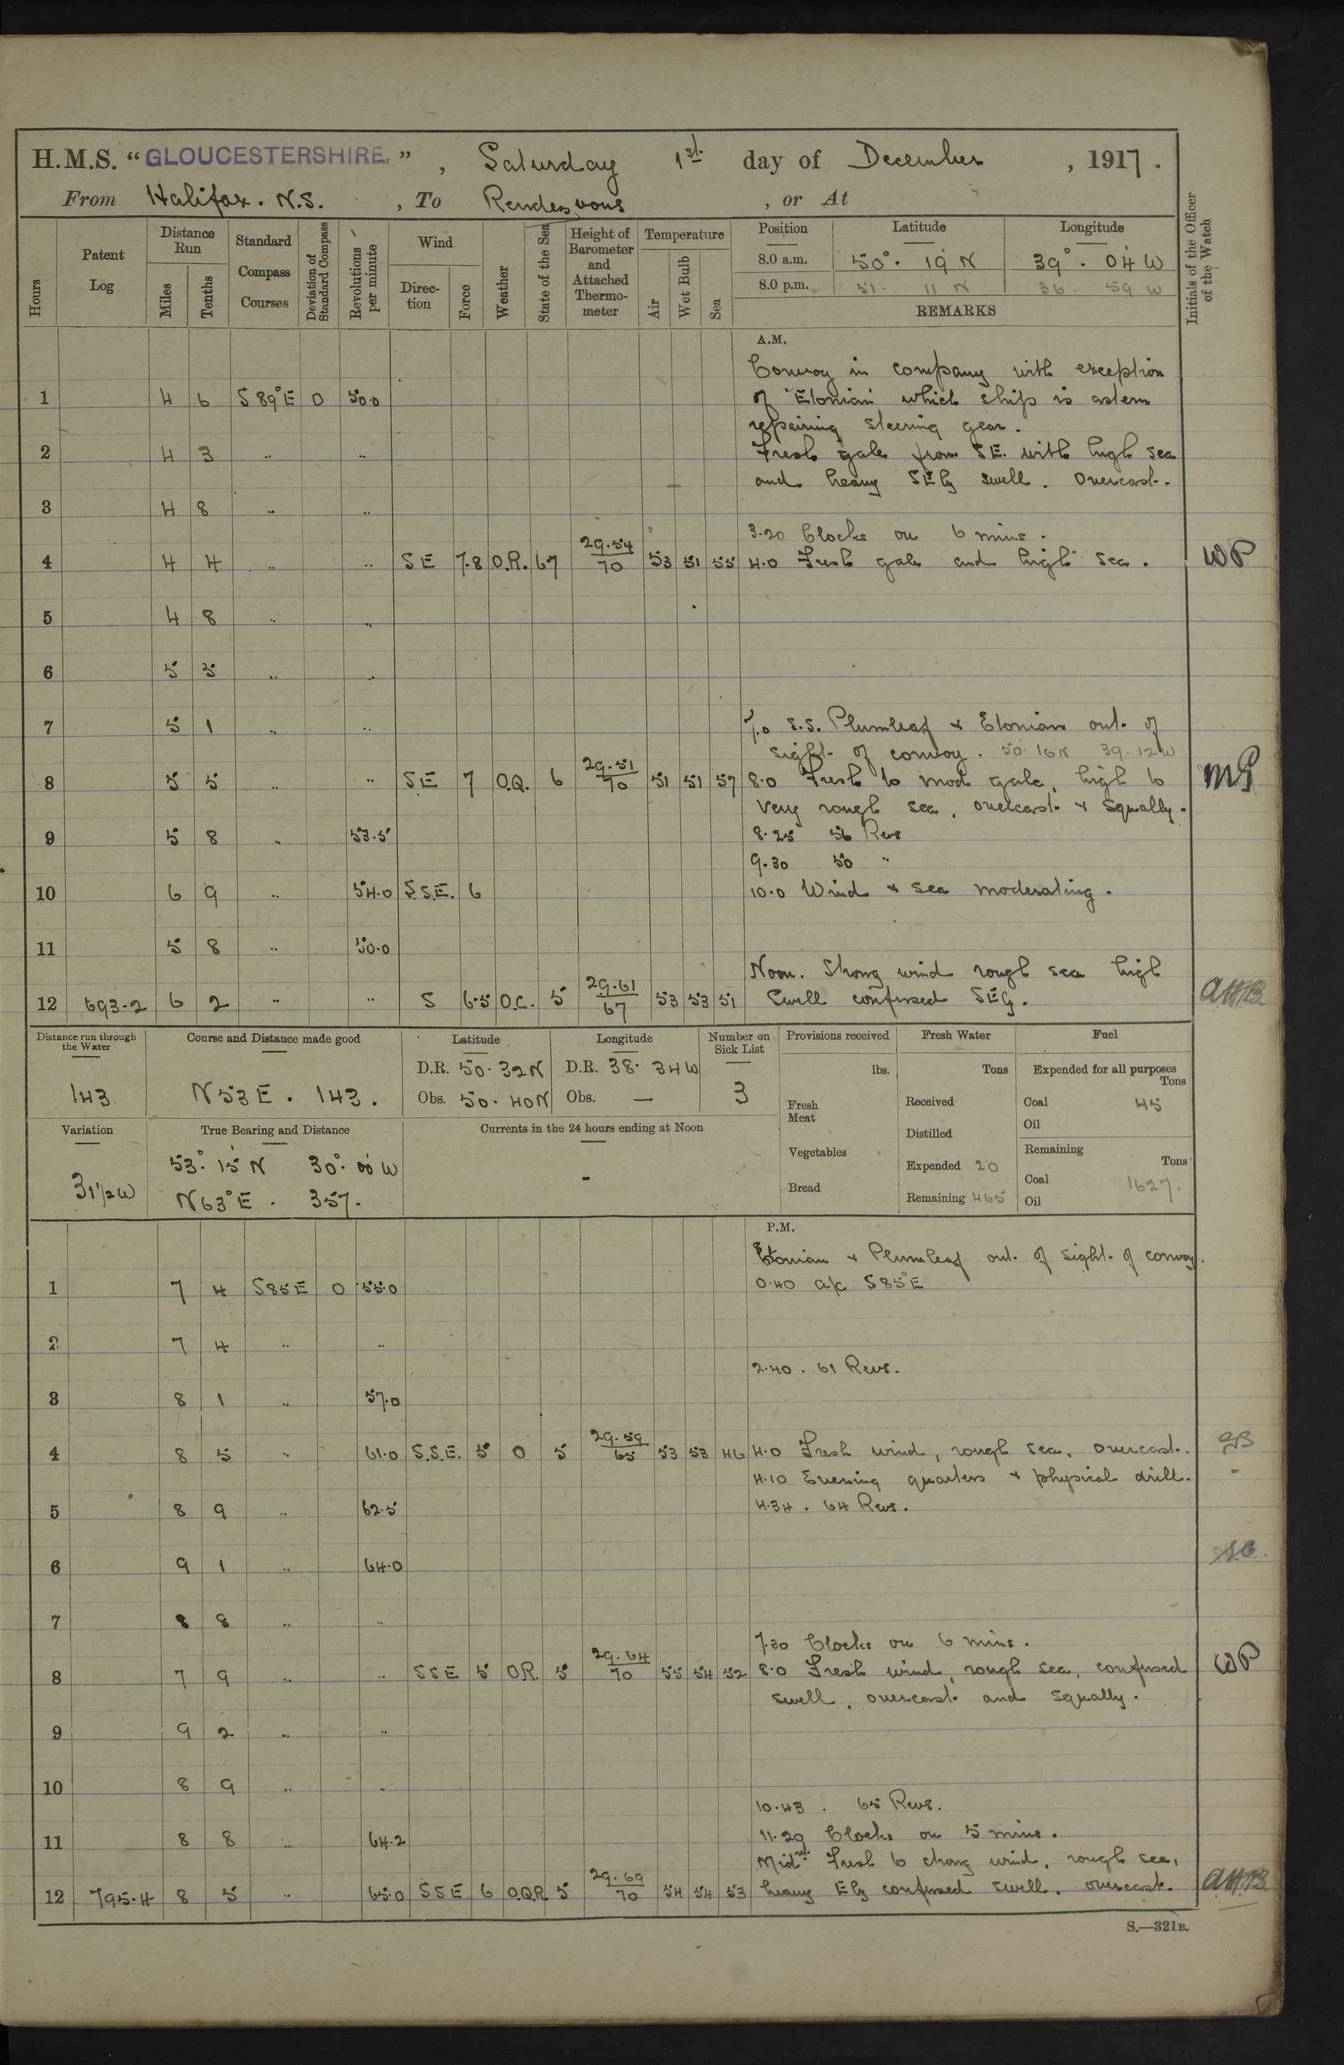 H.M.S. "GLOUCESTERSHIRE.", Saturday 1st day of December, 1917.
From Halifax. N.S., To Rendezvous, or At
Hours
Patent Log
Distance Run
Miles
Tenths
Standard Compass Courses
Deviation of Standard Compass
Revolutions per minute
Wind
Direction
Force
Weather
State of the Sea
Height of Barometer and Attached Thermometer
Temperature
Air
Wet Bulb
Sea
Position Latitude Longitude
8.0 a.m. 50° . 19 N 39° . 04 W
8.0 p.m. 51 . 11 N 36 59 W
REMARKS
Initials of the Officer of the Watch
A.M.
Convoy in company with exception
1 4 6 S 89° E 0 50.0 of "Etonian" which ship is astern
repairing steering gear.
2 4 3 .. .. Fresh gale from SE. with high sea
and heavy SEly swell. Overcast.
3 4 8 .. ..
3.20 Clocks on 6 mins.
4 4 4 .. .. SE 7.8 O.R. 67 29.54/70 53 51 55 4.0 Fresh gale and high sea. WP
5 4 8 .. ..
6 5 5 .. ..
7 5 1 .. .. 7.0 S.S. Plumleaf & Etonian out of
sight of convoy. 50.16N 39.12W
8 5 5 .. .. SE 7 O.Q. 6 29.51/70 51 51 57 8.0 Fresh to mod gale, high to
very rough sea, overcast & squally.
9 5 8 .. 53.5 8.25 56 Revs
9.30 50 "
10 6 9 .. 54.0 S.S.E. 6 10.0 Wind & sea moderating.
11 5 8 .. 50.0
Noon. Strong wind rough sea high
12 693.2 6 2 .. .. S 6.5 O.C. 5 29.61/67 53 53 51 swell confused SEly. AHB
Distance run through the Water
143
Course and Distance made good
N 53 E . 143.
Latitude
D.R. 50.32N
Obs. 50.40N
Longitude
D.R. 38. 34W
Obs. —
Number on Sick List
3
Provisions received
lbs.
Fresh Meat
Vegetables
Bread
Fresh Water
Tons
Received
Distilled
Expended 20
Remaining 465
Fuel
Expended for all purposes
Tons
Coal 45
Oil
Remaining
Tons
Coal 1627.
Oil
Variation
31½W
True Bearing and Distance
53° 15 N 30° 00 W
N 63° E . 357.
Currents in the 24 hours ending at Noon
-
P.M.
Etonian & Plumleaf out of sight of convoy.
1 7 4 S85E 0 55.0 0.40 a/c S85°E
2 7 4 .. ..
2.40. 61 Revs.
3 8 1 .. 57.0
4 8 5 .. 61.0 S.S.E. 5 O 5 29.59/65 53 53 46 4.0 Fresh wind, rough sea, overcast.
4.10 Evening quarters & physical drill.
5 8 9 .. 62.5 4.34. 64 Revs.
6 9 1 .. 64.0
7 8 8 .. ..
7.30 Clocks on 6 mins.
8 7 9 .. .. SSE 5 O.R. 5 29.64/70 55 54 52 8.0 Fresh wind, rough sea, confused WP
swell, overcast and squally.
9 9 2 .. ..
10 8 9 .. ..
10.43 . 65 Revs.
11 8 8 .. 64.2 11.29 Clocks on 5 mins.
Midt Fresh to strong wind, rough sea,
12 795.4 8 5 .. 65.0 SSE 6 O.Q.R. 5 29.69/70 54 54 53 heavy Ely confused swell. overcast. AHB
S.—321B.